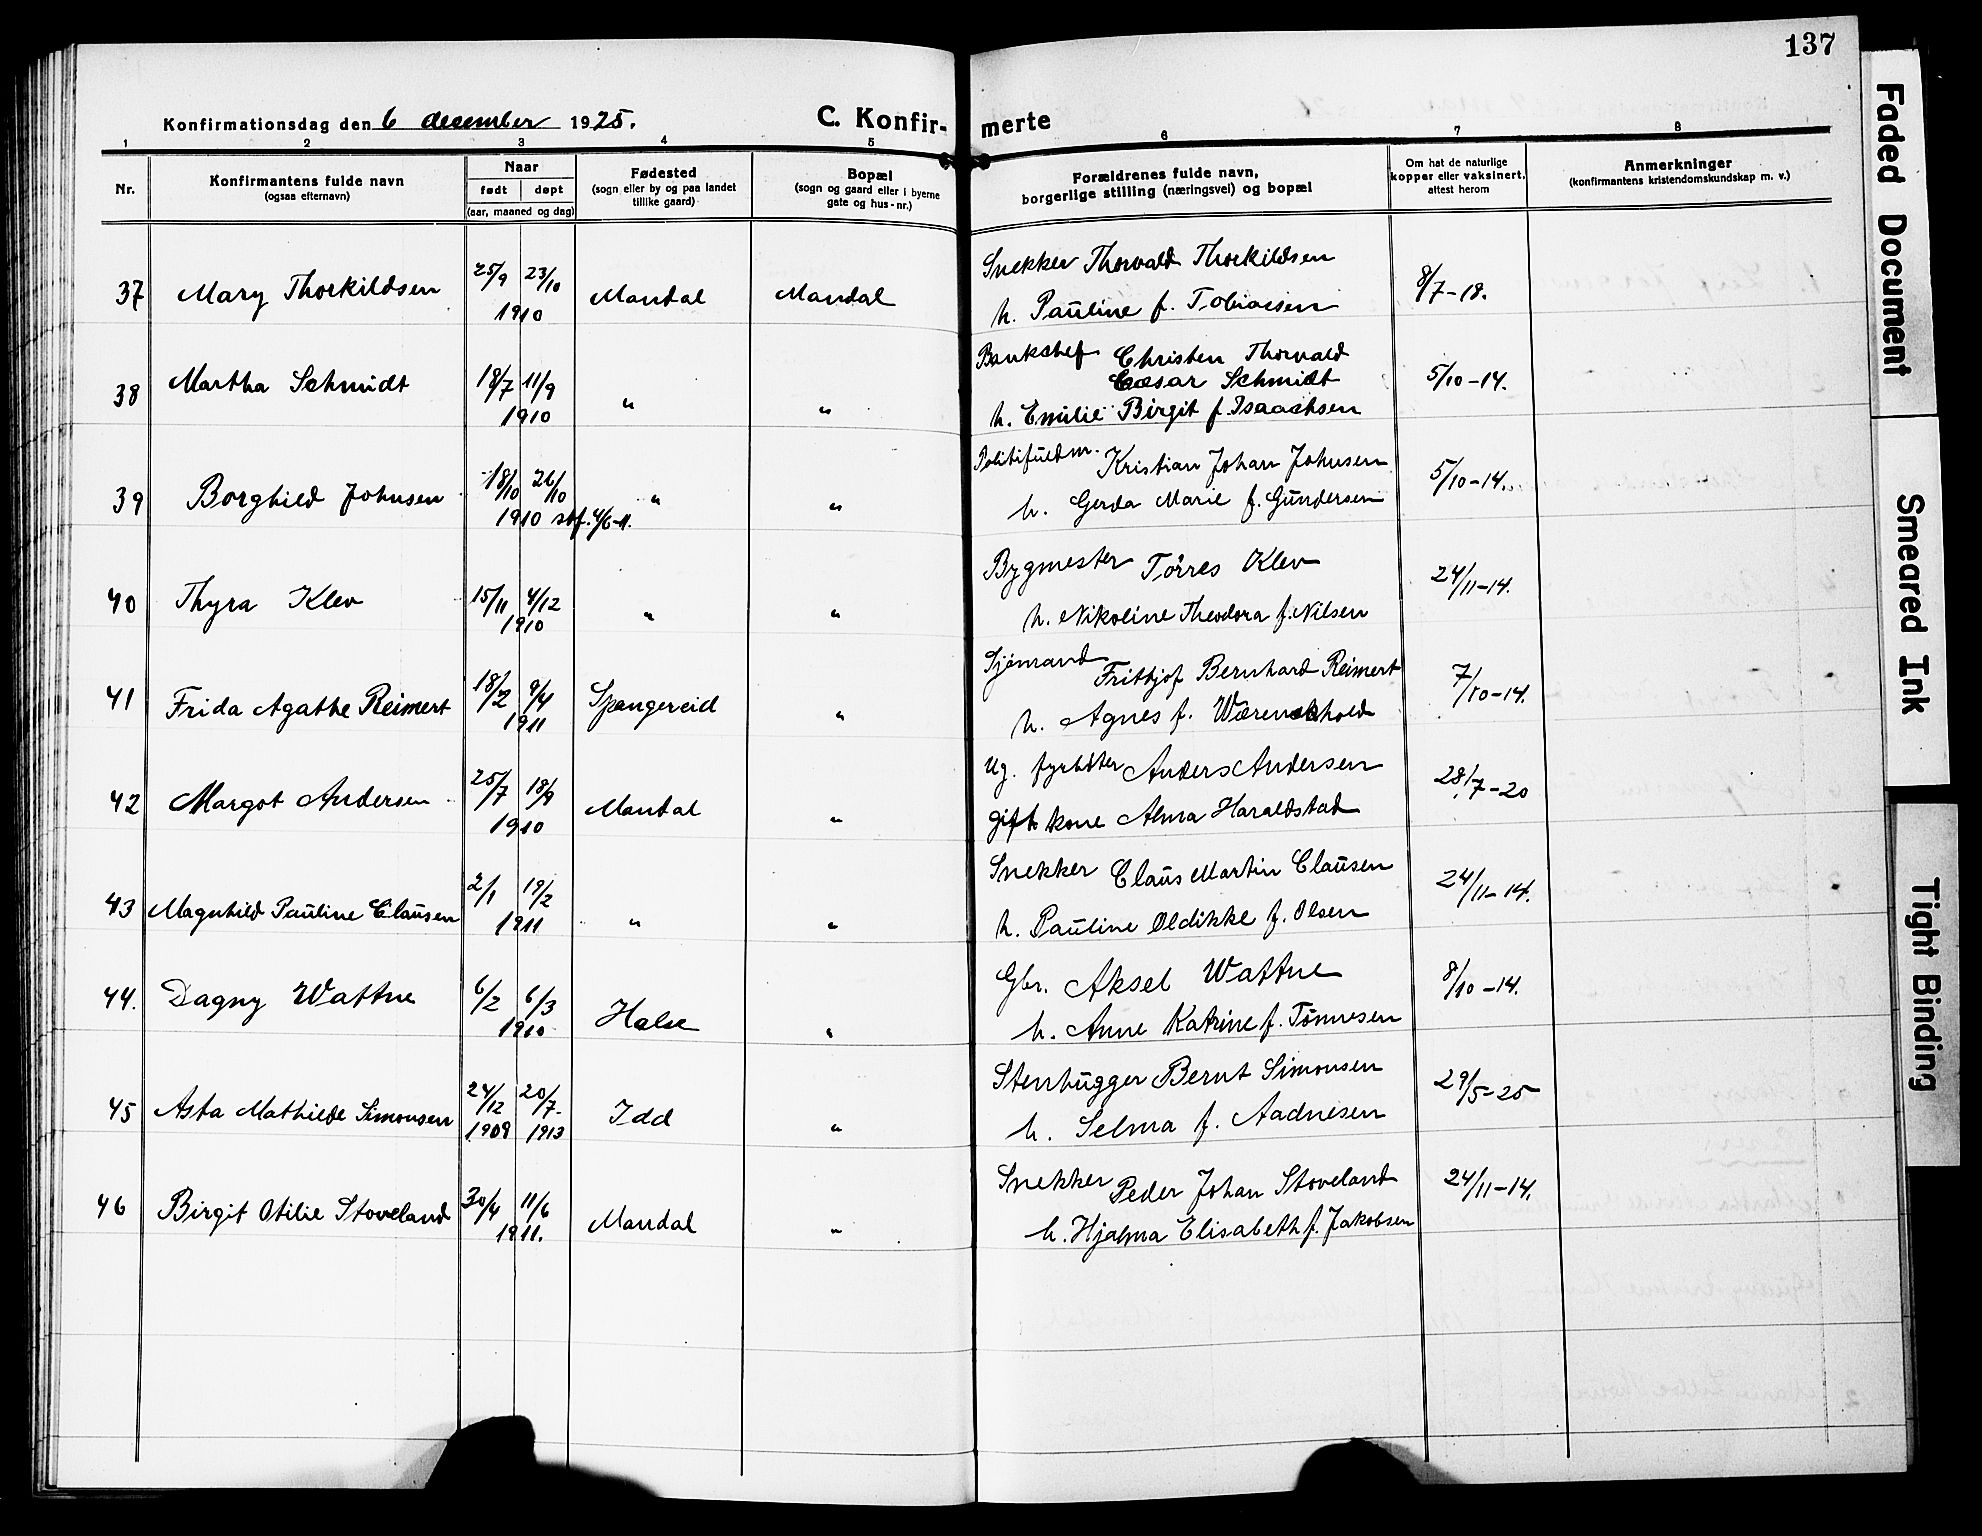 137
Konfirmationsdag den 6 december 1925.
C. Konfir-merte
1 2 3 4 5 6 7 8
Nr.
Konfirmantens fulde navn
(ogsaa efternavn)
Naar
født døpt
(aar, maaned og dag)
Fødested
(sogn eller by og paa landet
tillike gaard)
Bopæl
(sogn og gaard eller i byerne
gate og hus-nr.)
Forældrenes fulde navn,
borgerlige stilling (næringsvei) og bopæl
Om hat de naturlige
kopper eller vaksinert.
attest herom
Anmerkninger
(konfirmantens kristendomskundskap m. v.)
37 Mary Thorkildsen 25/9 23/10 1910 Mandal Mandal
Snekker Thorvald Thorkildsen
h. Pauline f. Tobiassen
8/7-18.
38 Martha Schmidt 18/7 11/9 1910 " "
Bankchef Christen Thorvald
Cæsar Schmidt
h. Emilie Birgit f. Isaachsen
5/10-14.
39 Borghild Johnsen 18/10 26/10 1910 stf. 4/6-11. " "
Politifuldm. Kristian Johan Johnsen
h. Gerda Marie f. Gundersen
5/10-14.
40 Thyra Klev 15/11 4/12 1910 " "
Bygmester Tørres Klev
h. Nikoline Theodora f. Nilsen
24/11-14.
41 Frida Agathe Reimert 18/2 9/4 1911 Spangereid "
Sjømand Fritbjof Bernhard Reimert
h. Agnes f. Wærenskhold
7/10-14.
42 Margot Andersen 25/7 18/9 1910 Mandal "
Ug. fyrbøter Anders Andersen
gift kone Alma Haraldstad
28/7-20
43 Magnhild Pauline Clausen 2/1 19/2 1911 " "
Snekker Claus Martin Clausen
h. Pauline Oldikke f. Olsen
24/11-14.
44. Dagny Wattne 6/2 6/3 1910 Halse "
Gbr. Aksel Wattne
h. Anne Katrine f. Tønnesen
8/10-14.
45 Asta Mathilde Simonsen 24/12 1909 20/7 1913 Idd "
Stenhugger Bernt Simonsen
h. Selma f. Aadnesen
29/5-25
46 Birgit Otilie Stoveland 30/4 11/6 1911. Mandal "
Snekker Peder Johan Stoveland
h. Hjalma Elisabeth f. Jakobsen
24/11-14.
Faded Document
Smeared Ink
Tight Binding